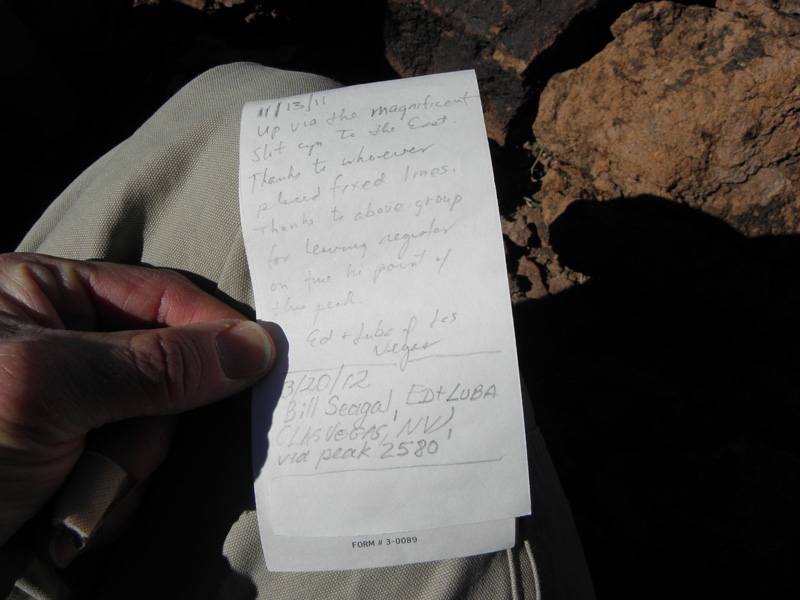 11/13/11
Up via the magnificent
slot cyn to the East.
Thanks to whoever
placed fixed lines.
Thanks to above group
for leaving register
on true hi point of
this peak.
Ed + Luba of Las
Vegas
3/20/12
Bill Seagal, ED + LUBA
(LAS VEGAS, NV)
via peak 2580
FORM # 3-0089